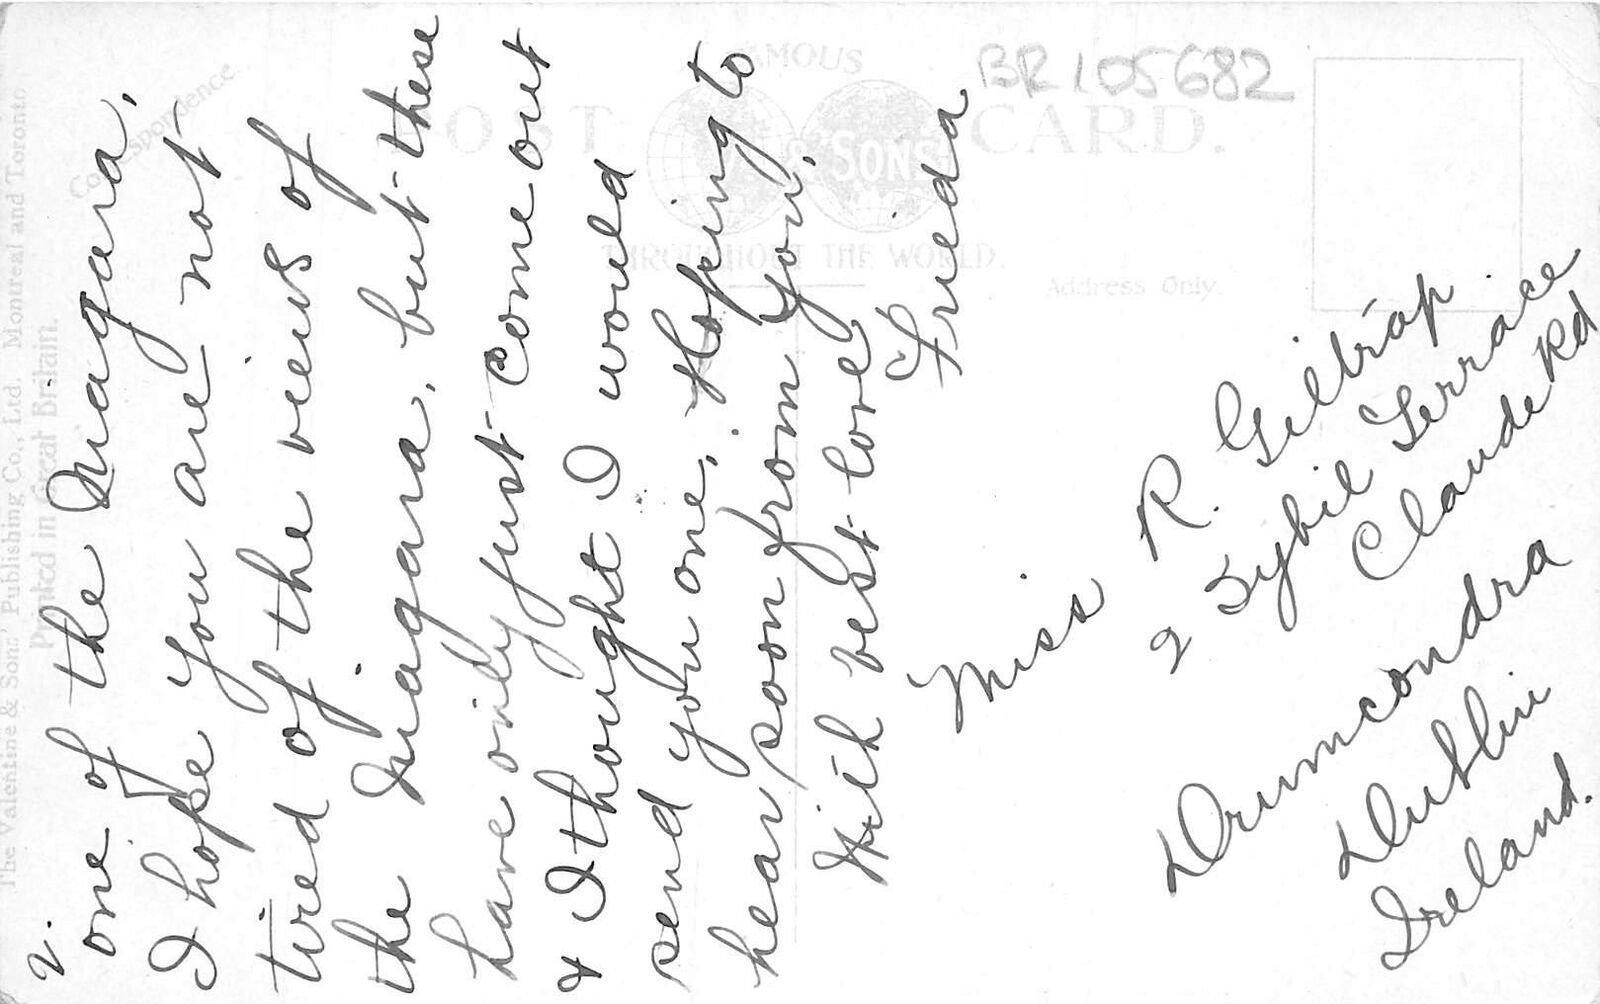 2.
one of the Niagara,
I hope you are not
tired of the views of
the Niagara, but these
have only just come out
& I thought I would
send you one. Hoping to
hear soon from you,
With best love
Frieda
Miss R. Giltrap
2 Sybil Terrace
Claude Rd
Drumcondra
Dublin
Ireland.
BR105682
FAMOUS
POST CARD.
& SONS
THROUGHOUT THE WORLD.
Correspondence
Address Only.
The Valentine & Sons' Publishing Co., Ltd. Montreal and Toronto
Printed in Great Britain.